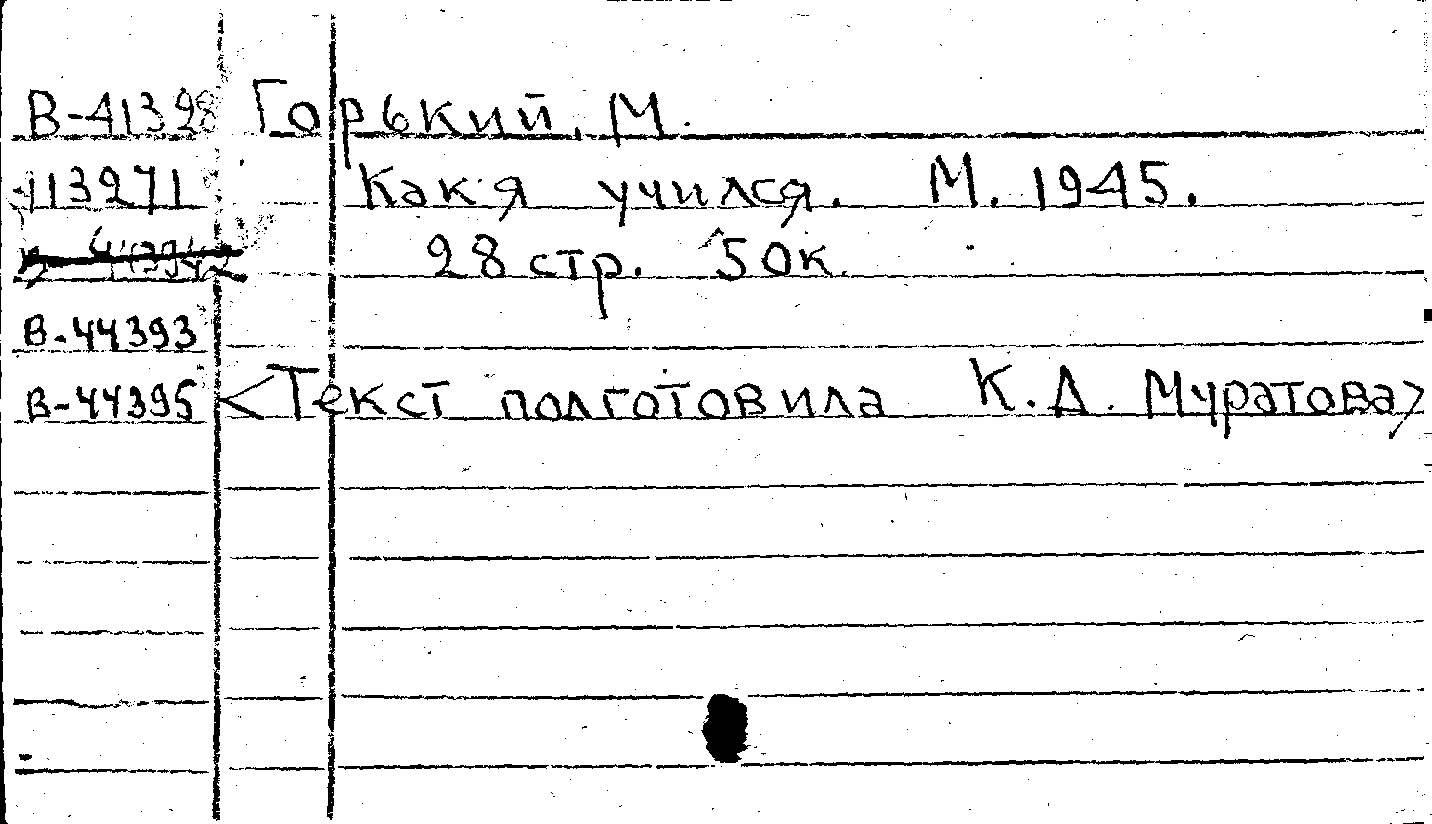 В-41398 Горький, М.
113271 Как я учился. М. 1945.
28 стр. 50к.
В-44393
В-44395 <Текст полготовила К.Д. Муратова>